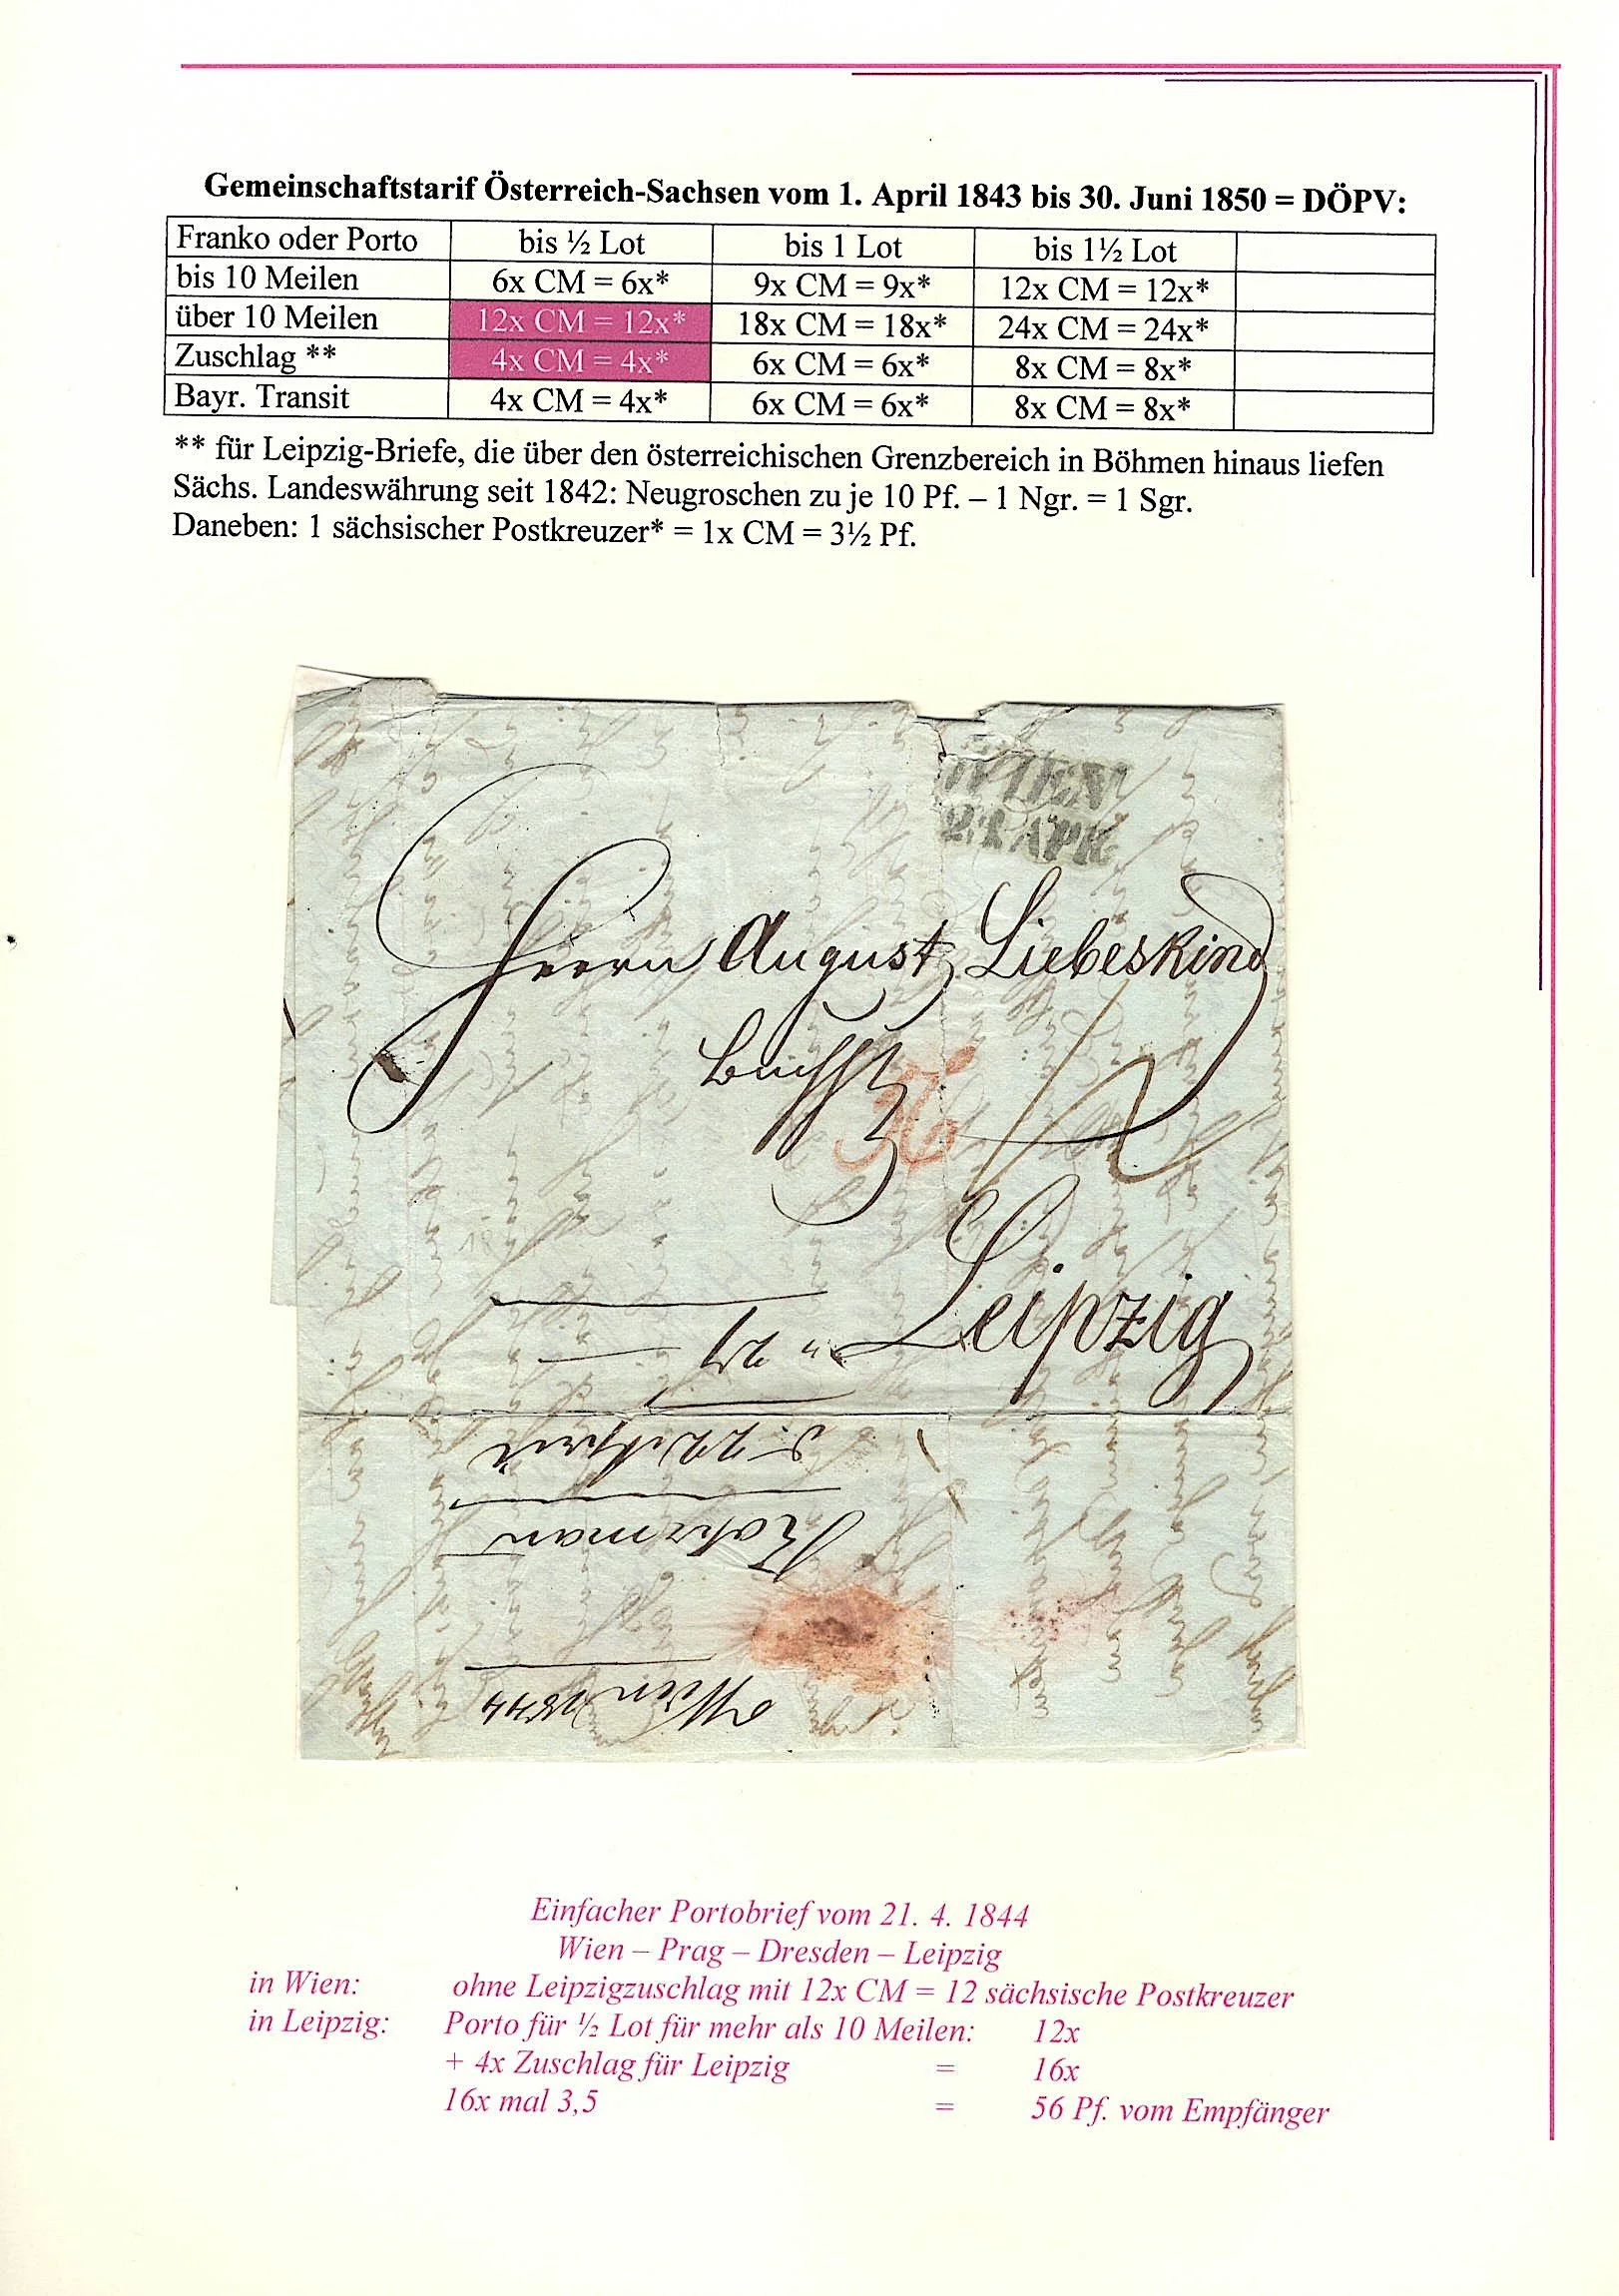 Gemeinschaftstarif Österreich-Sachsen vom 1. April 1843 bis 30. Juni 1850 = DÖPV:
Franko oder Porto bis ½ Lot bis 1 Lot bis 1½ Lot
bis 10 Meilen 6x CM = 6x* 9x CM = 9x* 12x CM = 12x*
über 10 Meilen 12x CM = 12x* 18x CM = 18x* 24x CM = 24x*
Zuschlag ** 4x CM = 4x* 6x CM = 6x* 8x CM = 8x*
Bayr. Transit 4x CM = 4x* 6x CM = 6x* 8x CM = 8x*
** für Leipzig-Briefe, die über den österreichischen Grenzbereich in Böhmen hinaus liefen
Sächs. Landeswährung seit 1842: Neugroschen zu je 10 Pf. – 1 Ngr. = 1 Sgr.
Daneben: 1 sächsischer Postkreuzer* = 1x CM = 3½ Pf.
WIEN
21 APR
Herrn August Liebeskind
Leipzig
Wien 1844
Einfacher Portobrief vom 21. 4. 1844
Wien – Prag – Dresden – Leipzig
in Wien: ohne Leipzigzuschlag mit 12x CM = 12 sächsische Postkreuzer
in Leipzig: Porto für ½ Lot für mehr als 10 Meilen: 12x
+ 4x Zuschlag für Leipzig = 16x
16x mal 3,5 = 56 Pf. vom Empfänger